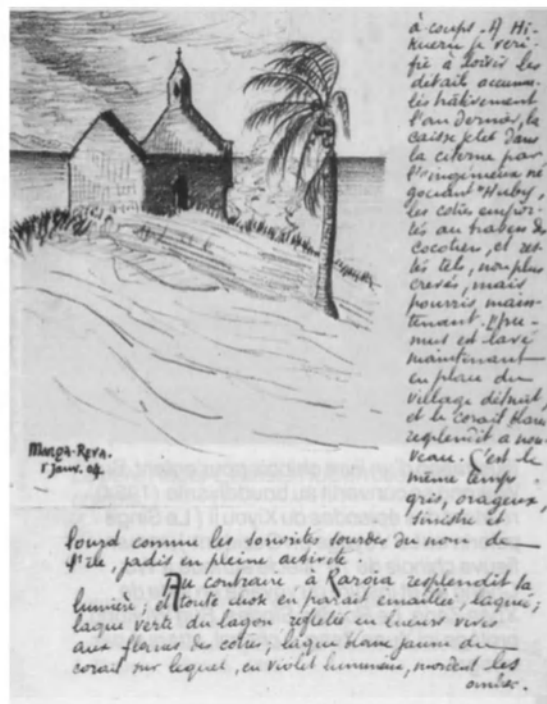 à coups. A Hi-
kueru je véri-
fie à loisir les
détails accumu-
lés hâtivement
l'an dernier, la
caisse jetée dans
la citerne par
l'ingénieux né
gociant "Huby",
les cotres empor-
tés au travers des
cocotiers, et res-
tés tels, non plus
crevés, mais
pourris main-
tenant. L'hu-
mus est lavé
maintenant
en place du
village détruit,
et le corail blanc
resplendit à nou-
veau. C'est le
même temps
gris, orageux,
sinistre et
lourd comme les sonorités sourdes du nom de
l'île, jadis en pleine activité.
Au contraire, à Raroia resplendit la
lumière ; et toute chose en paraît émaillée, laquée ;
laque verte du lagon reflétée en lueurs vives
aux flancs des cotres ; laque blanc jaune du
corail sur lequel, en violet lumineux, mordent les
ombres.
Manga-Reva.
1 Janv. 04.